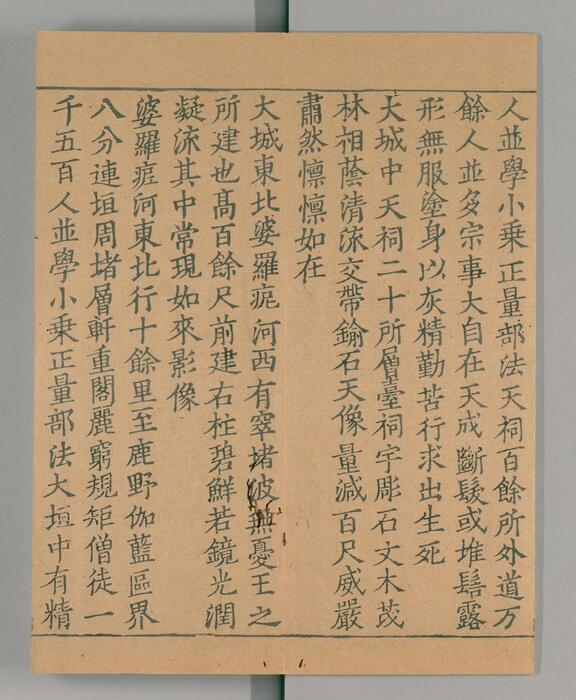 人並學小乗正量部法天祠百餘所外道万
餘人並多宗事大自在天或斷髮或堆髻露
形無服塗身以灰精勤苦行求出生死
大城中天祠二十所層臺祠宇彫石文木茂
林相蔭清流交帶鍮石天像量減百尺威嚴
肅然懔懔如在
大城東北婆羅痆河西有窣堵波無憂王之
所建也髙百餘尺前建石柱碧鮮若鏡光潤
凝流其中常現如來影像
婆羅痆河東北行十餘里至鹿野伽藍區界
八分連垣周堵層軒重閣麗窮規矩僧徒一
千五百人並學小乗正量部法大垣中有精